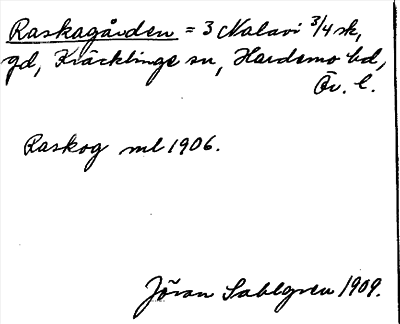 Raskagården = 3 Nalavi 3/4 sk,
gd, Kräcklinge sn, Hardemo hd,
Ör. l.
Raskog ml 1906.
Jöran Sahlgren 1909.